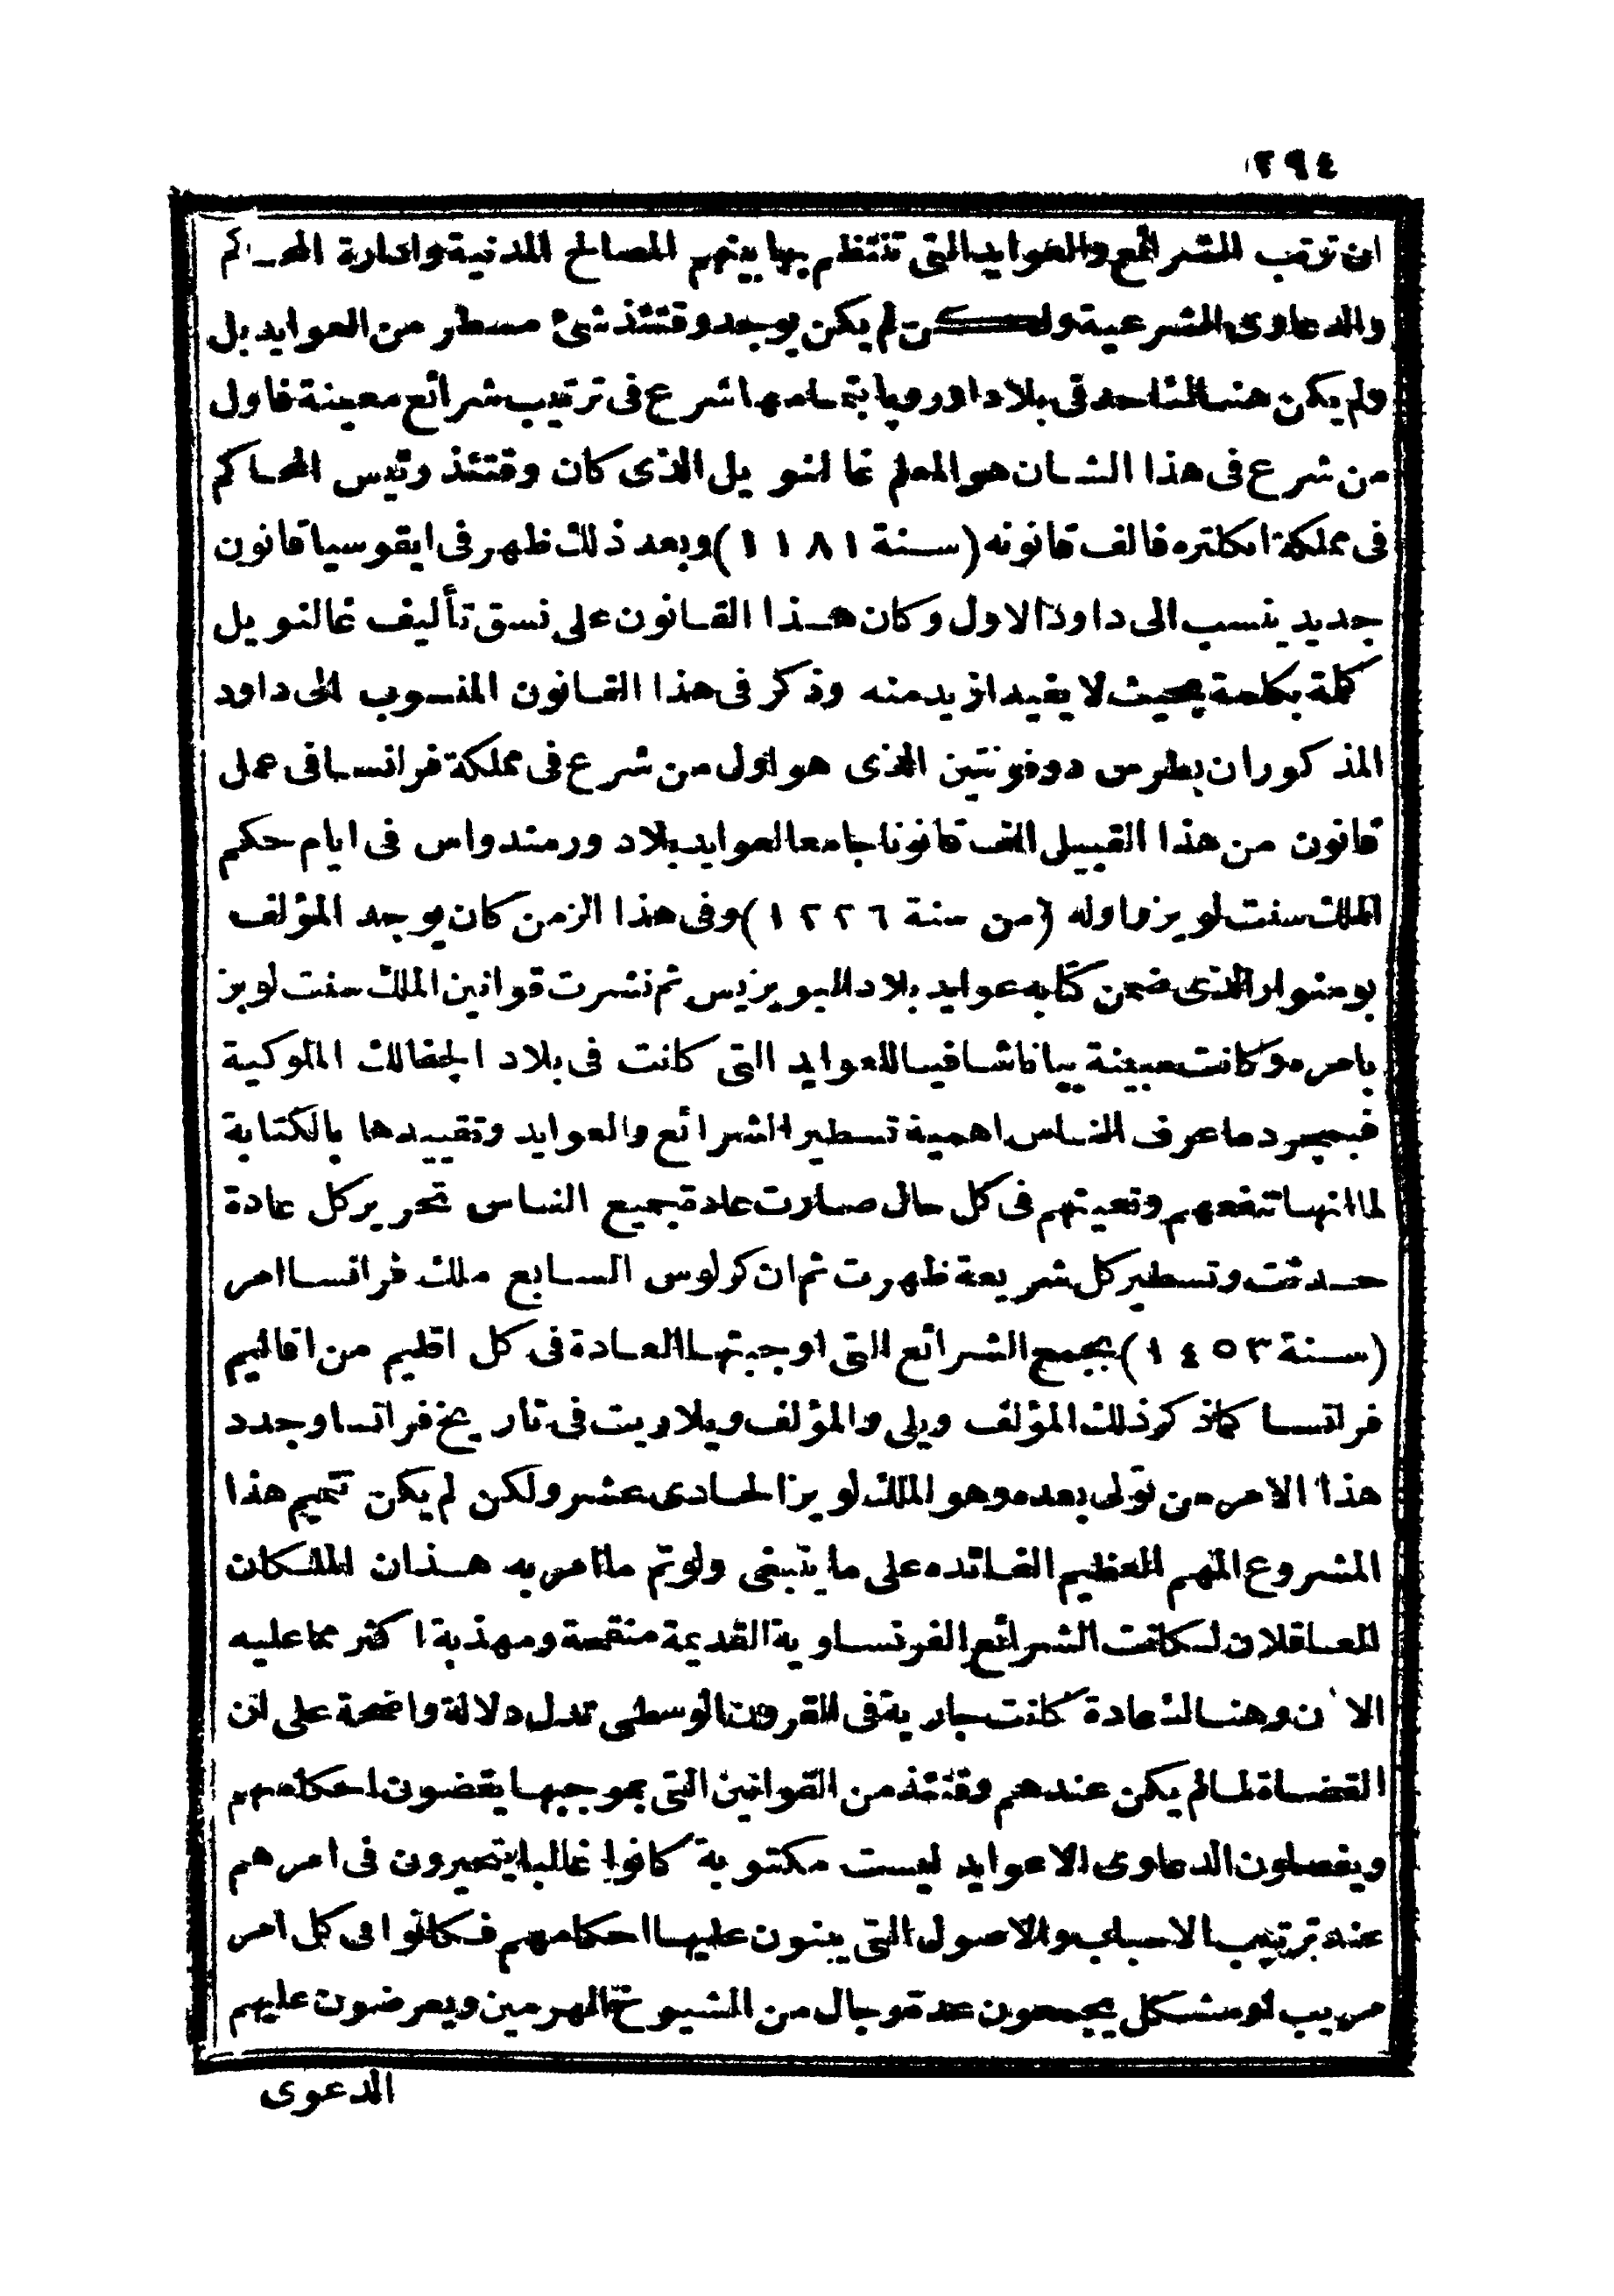 ٢٩٤
ان ترتب الشرائع والعوايد التى تنتظم بها بينهم المصالح المدنية وادارة المحاكم
والدعاوى الشرعية ولكن لم يكن يوجد وقتئذ شئ مسطر من العوايد بل
ولم يكن هناك احد فى بلاد اوروپا بتمامها شرع فى ترتيب شرائع معينة فاول
من شرع فى هذا الشان هو المعلم غالنويل الذى كان وقتئذ رئيس المحاكم
فى مملكة انكلتره فالف قانونه (سنة ١١٨١) وبعد ذلك ظهر فى ايقوسيا قانون
جديد ينسب الى داود الاول وكان هذا القانون على نسق تأليف غالنويل
كلمة بكلمة بحيث لا يفيد ازيد منه وذكر فى هذا القانون المنسوب الى داود
المذكور ان بطرس دوفونتين الذى هو اول من شرع فى مملكة فرانسا فى عمل
قانون من هذا القبيل الف قانونا جامعا لعوايد بلاد ورمندواس فى ايام حكم
الملك سنت لويز واوله (من سنة ١٢٢٦) وفى هذا الزمن كان يوجد المؤلف
بومنوار الذى ضمن كتابه عوايد بلاد البويزيس ثم نشرت قوانين الملك سنت لويز
بامره وكانت مبينة بيانا شافيا للعوايد التى كانت فى بلاد الجفالك الملوكية
فبمجرد ما عرف الناس اهمية تسطير الشرائع والعوايد وتقييدها بالكتابة
لما انها تنفعهم وتعينهم فى كل حال صارت عادة جميع الناس تحرير كل عادة
حدثت وتسطير كل شريعة ظهرت ثم ان كرلوس السابع ملك فرانسا امر
(سنة ١٤٥٣) بجمع الشرائع التى اوجبتها العادة فى كل اقليم من اقاليم
فرانسا كما ذكر ذلك المؤلف ويلى والمؤلف ويلاريت فى تاريخ فرانسا وجدد
هذا الامر من تولى بعده وهو الملك لويز الحادى عشر ولكن لم يكن تتميم هذا
المشروع المهم العظيم الفائده على ما ينبغى ولو تم ما امر به هذان الملكان
العاقلان لكانت الشرائع الفرنساوية القديمة منقحة ومهذبة اكثر مما عليه
الاٰن وهناك عادة كانت جارية فى القرون الوسطى تدل دلالة واضحة على ان
القضاة لما لم يكن عندهم وقتئذ من القوانين التى بموجبها يقضون احكامهم
ويفصلون الدعاوى الا عوايد ليست مكتوبة كانوا غالبا يتحيرون فى امرهم
عند ترتيب الاسباب والاصول التى يبنون عليها احكامهم فكانوا فى كل امر
مريب او مشكل يجمعون عدة رجال من الشيوخ الهرمين ويعرضون عليهم
الدعوى